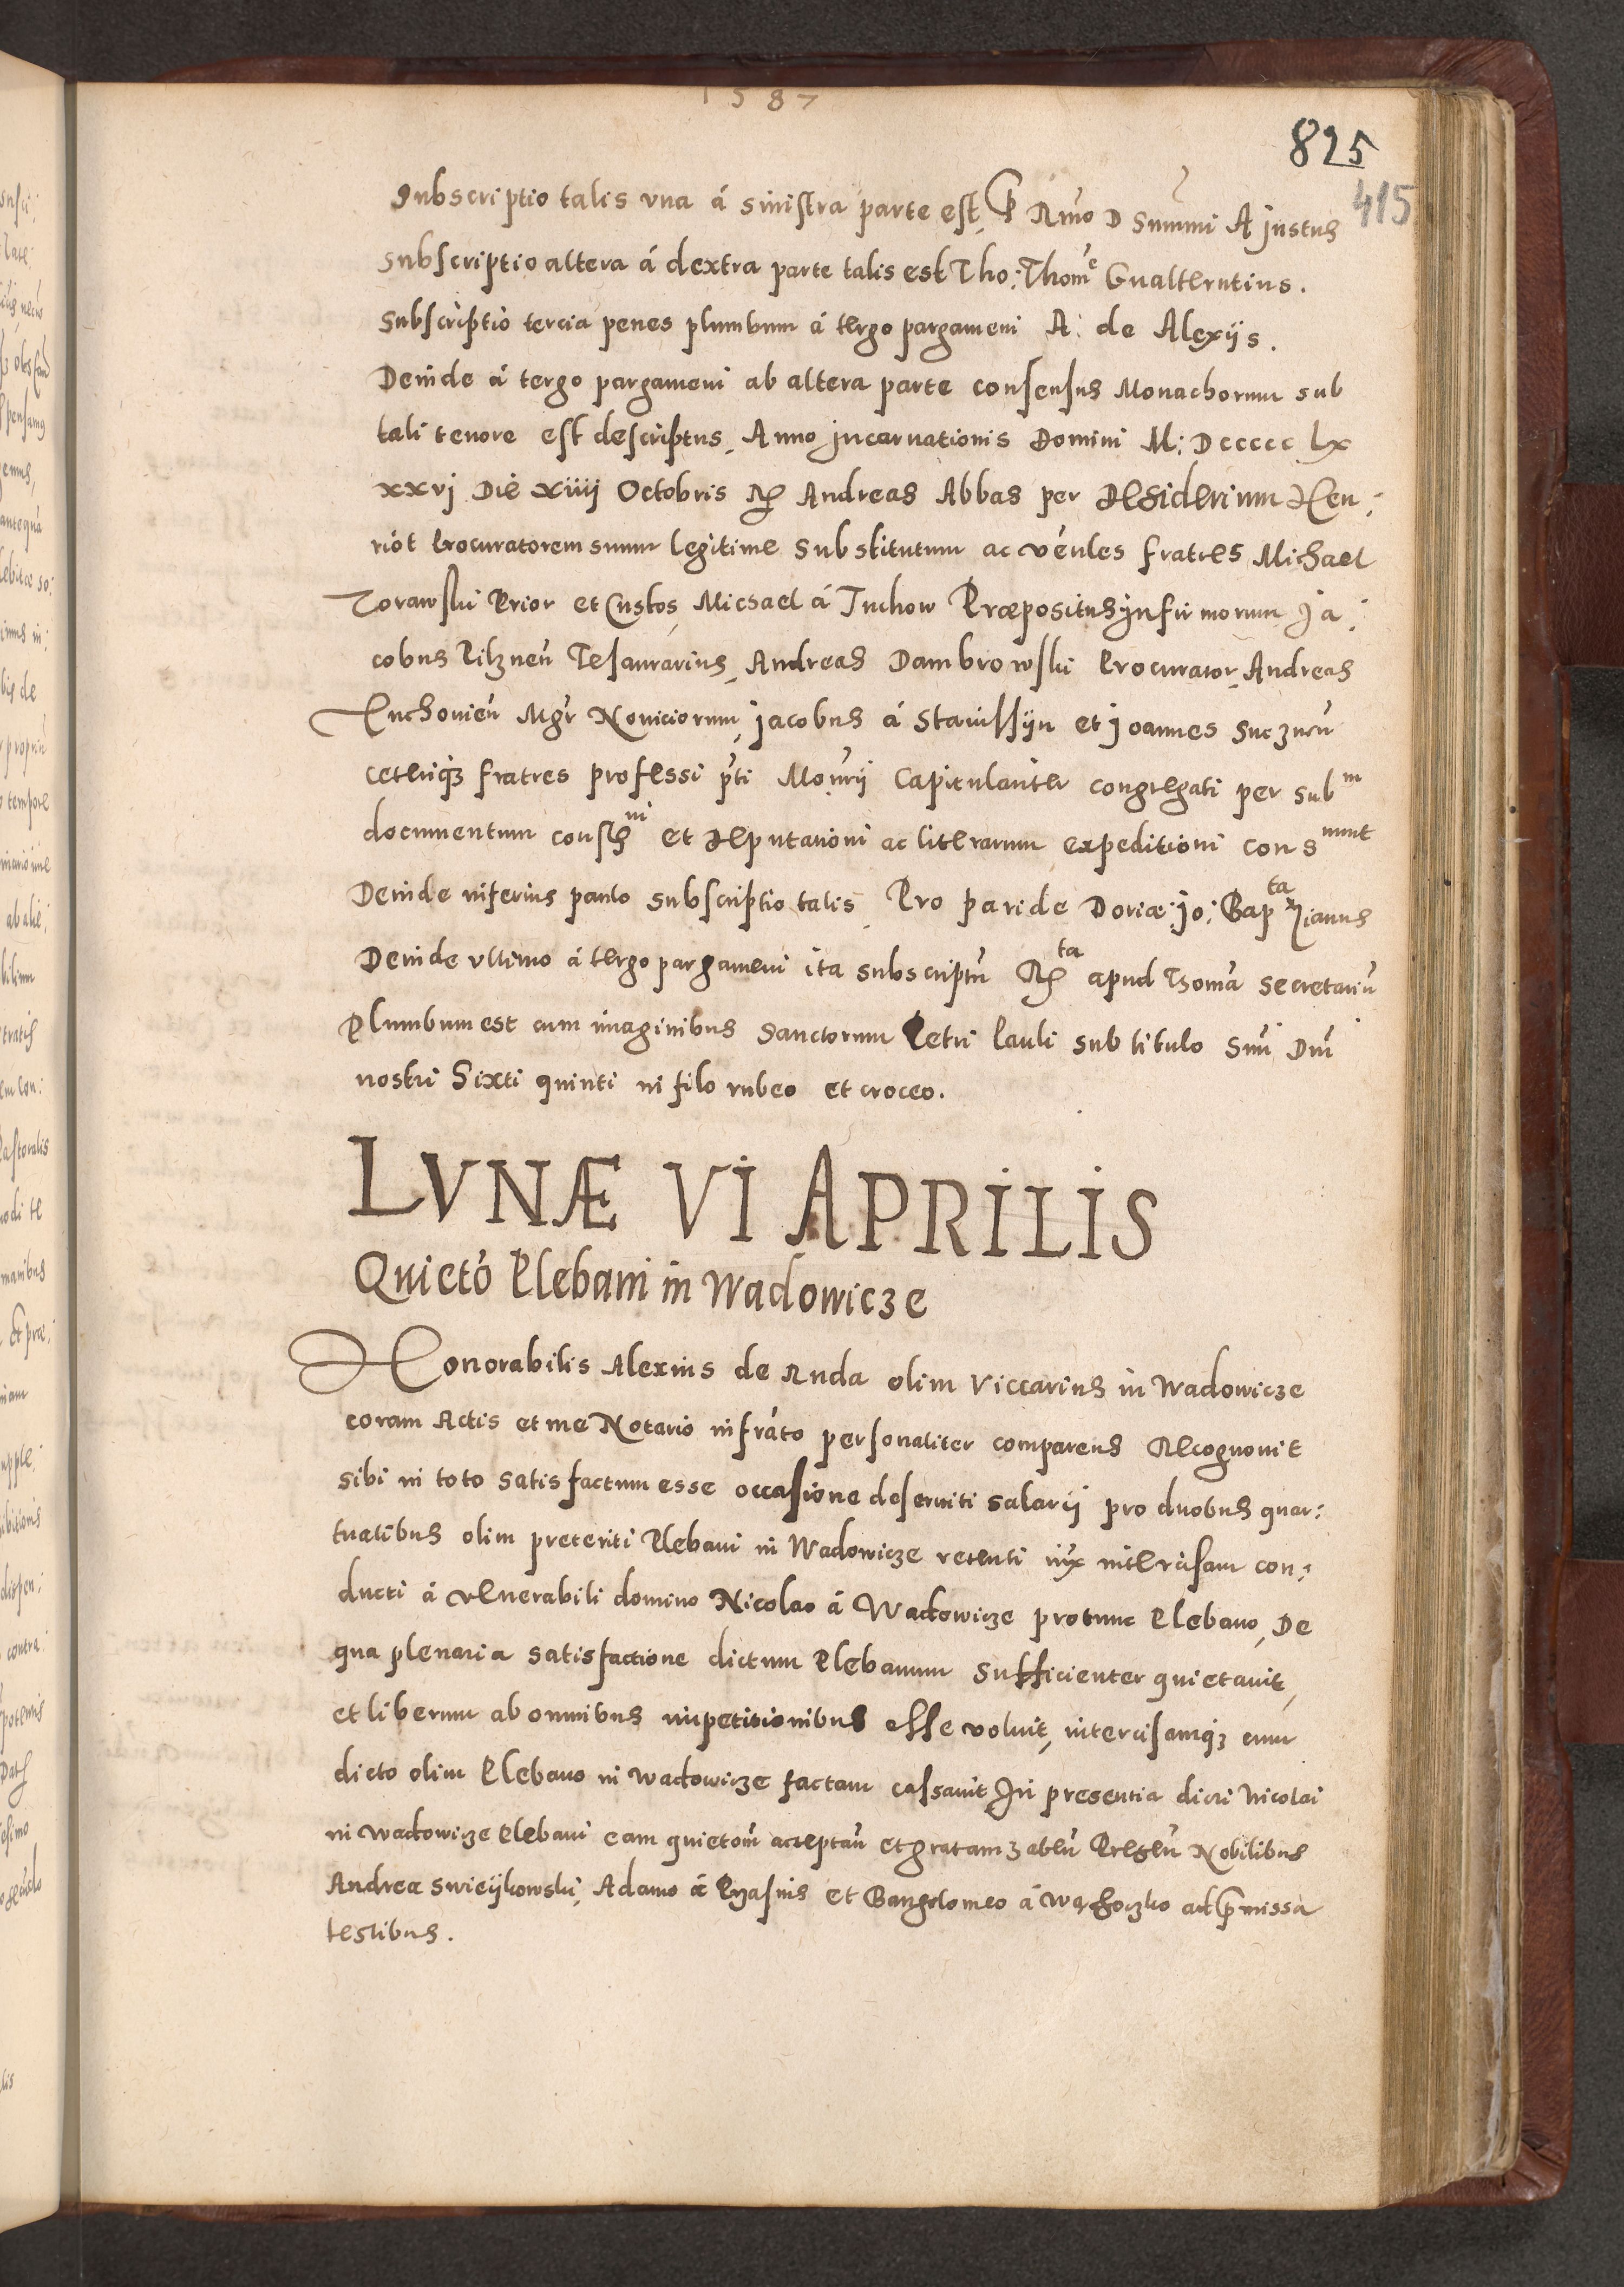 1587
825
415
Subscriptio talis vna á sinistra parte est, P Rmo D Summi A justus
Subscriptio altera á dextra parte talis est Tho: Thome Gualterutius.
Subscriptio tercia penes plumbum á tergo pargameni A: de Alexijs.
Deinde á tergo pargameni ab altera parte consensus Monachorum sub
tali tenore est descriptus, Anno jncarnationis Domini M: Dccccc lx
xxvj Die xiiij Octobris Andreas Abbas per Desiderium Hen:
riot Procuratorem suum legitime substitutum ac venles fratres Michael
Zorawski Prior et Custos, Michael á Tuchow Præpositus jnfirmorum Ja:
cobus Pilznen Tesaurarius, Andreas Dambrowski Procurator, Andreas
Tuchovien Mgr Noviciorum, jacobus á Stanissijn et joannes
ceteriqz fratres professi pti Monrij Capitulariter congregati per sub m
documentum et deputationi ac literarum expeditioni cons nunt
Deinde inferius paulo subscriptio talis, Pro paride Doriæ: jo: Bap ta
Deinde vltimo á tergo pargameni ita subscriptu Rta apud Thoma secretariu
Plumbum est cum imaginibus Sanctorum Petri Pauli sub titulo Smi Dni
nostri Sixti quinti in filo rubeo et croceo.
LVNÆ VI APRILIS
Quieto Plebani in Wadowicze
Honorabilis Alexius de Ruda olim Viccarius in Wadowicze
coram Actis et me Notario infrato personaliter comparens Recognovit
sibi in toto satisfactum esse occasione deserviti salarij pro duobus quar:
tualibus olim preteriti Plebani in Wadowicze retenti iux intercisam con:
ducti á venerabili domino Nicolao á Wadowicze protunc Plebano, De
qua plenaria satisfactione dictum Plebanum sufficienter quietavit,
et liberum ab omnibus impetitionibus esse voluit, intercisamqz cum
dicto olim Plebano in Wadowicze factam cassavit In presentia dicti Nicolai
in Wadowicze Plebani eam quietom acceptan et gratam Presen Nobilibus
Andrea Swieijkowski, Adamo á et á ad pmissa
testibus.